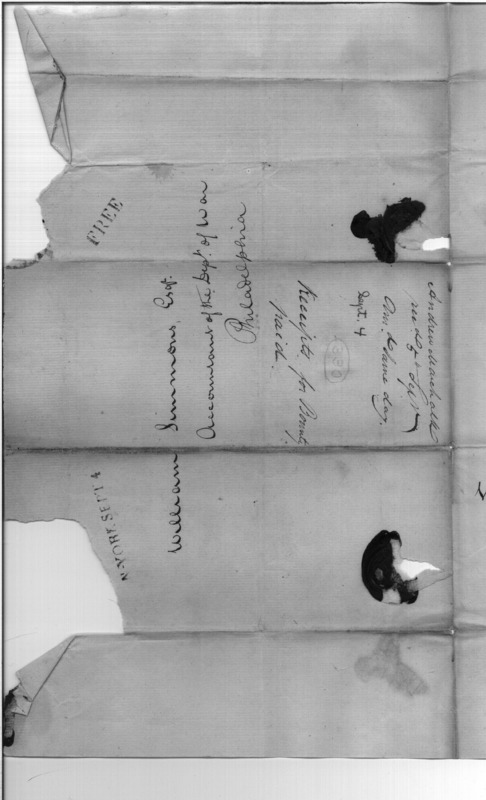 FREE
N-YORK. SEPT. 4
William Simmons, Esqr.
Accountant of the Dept. of War
Philadelphia
Andrew Marschalk
Ans. the same day.
Sept. 4
Receipts for Bounty
paid.